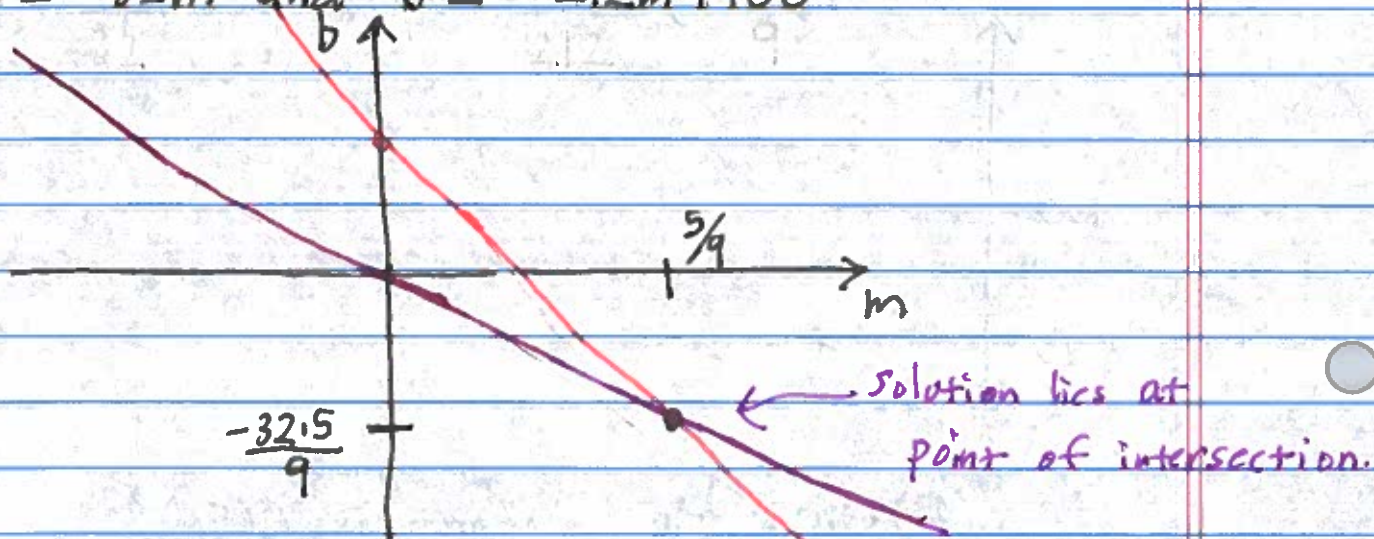 and b =
b
5/9
m
-32·5
9
solution lies at
point of intersection.